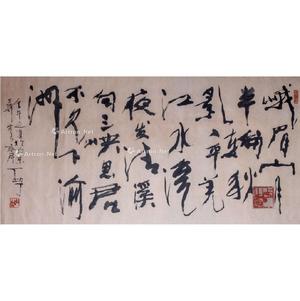 峨眉山月
半輪秋
影入平羌
江水流
夜发清溪
向三峡思君
不见下渝
州
Artron.Net
Artron.Net